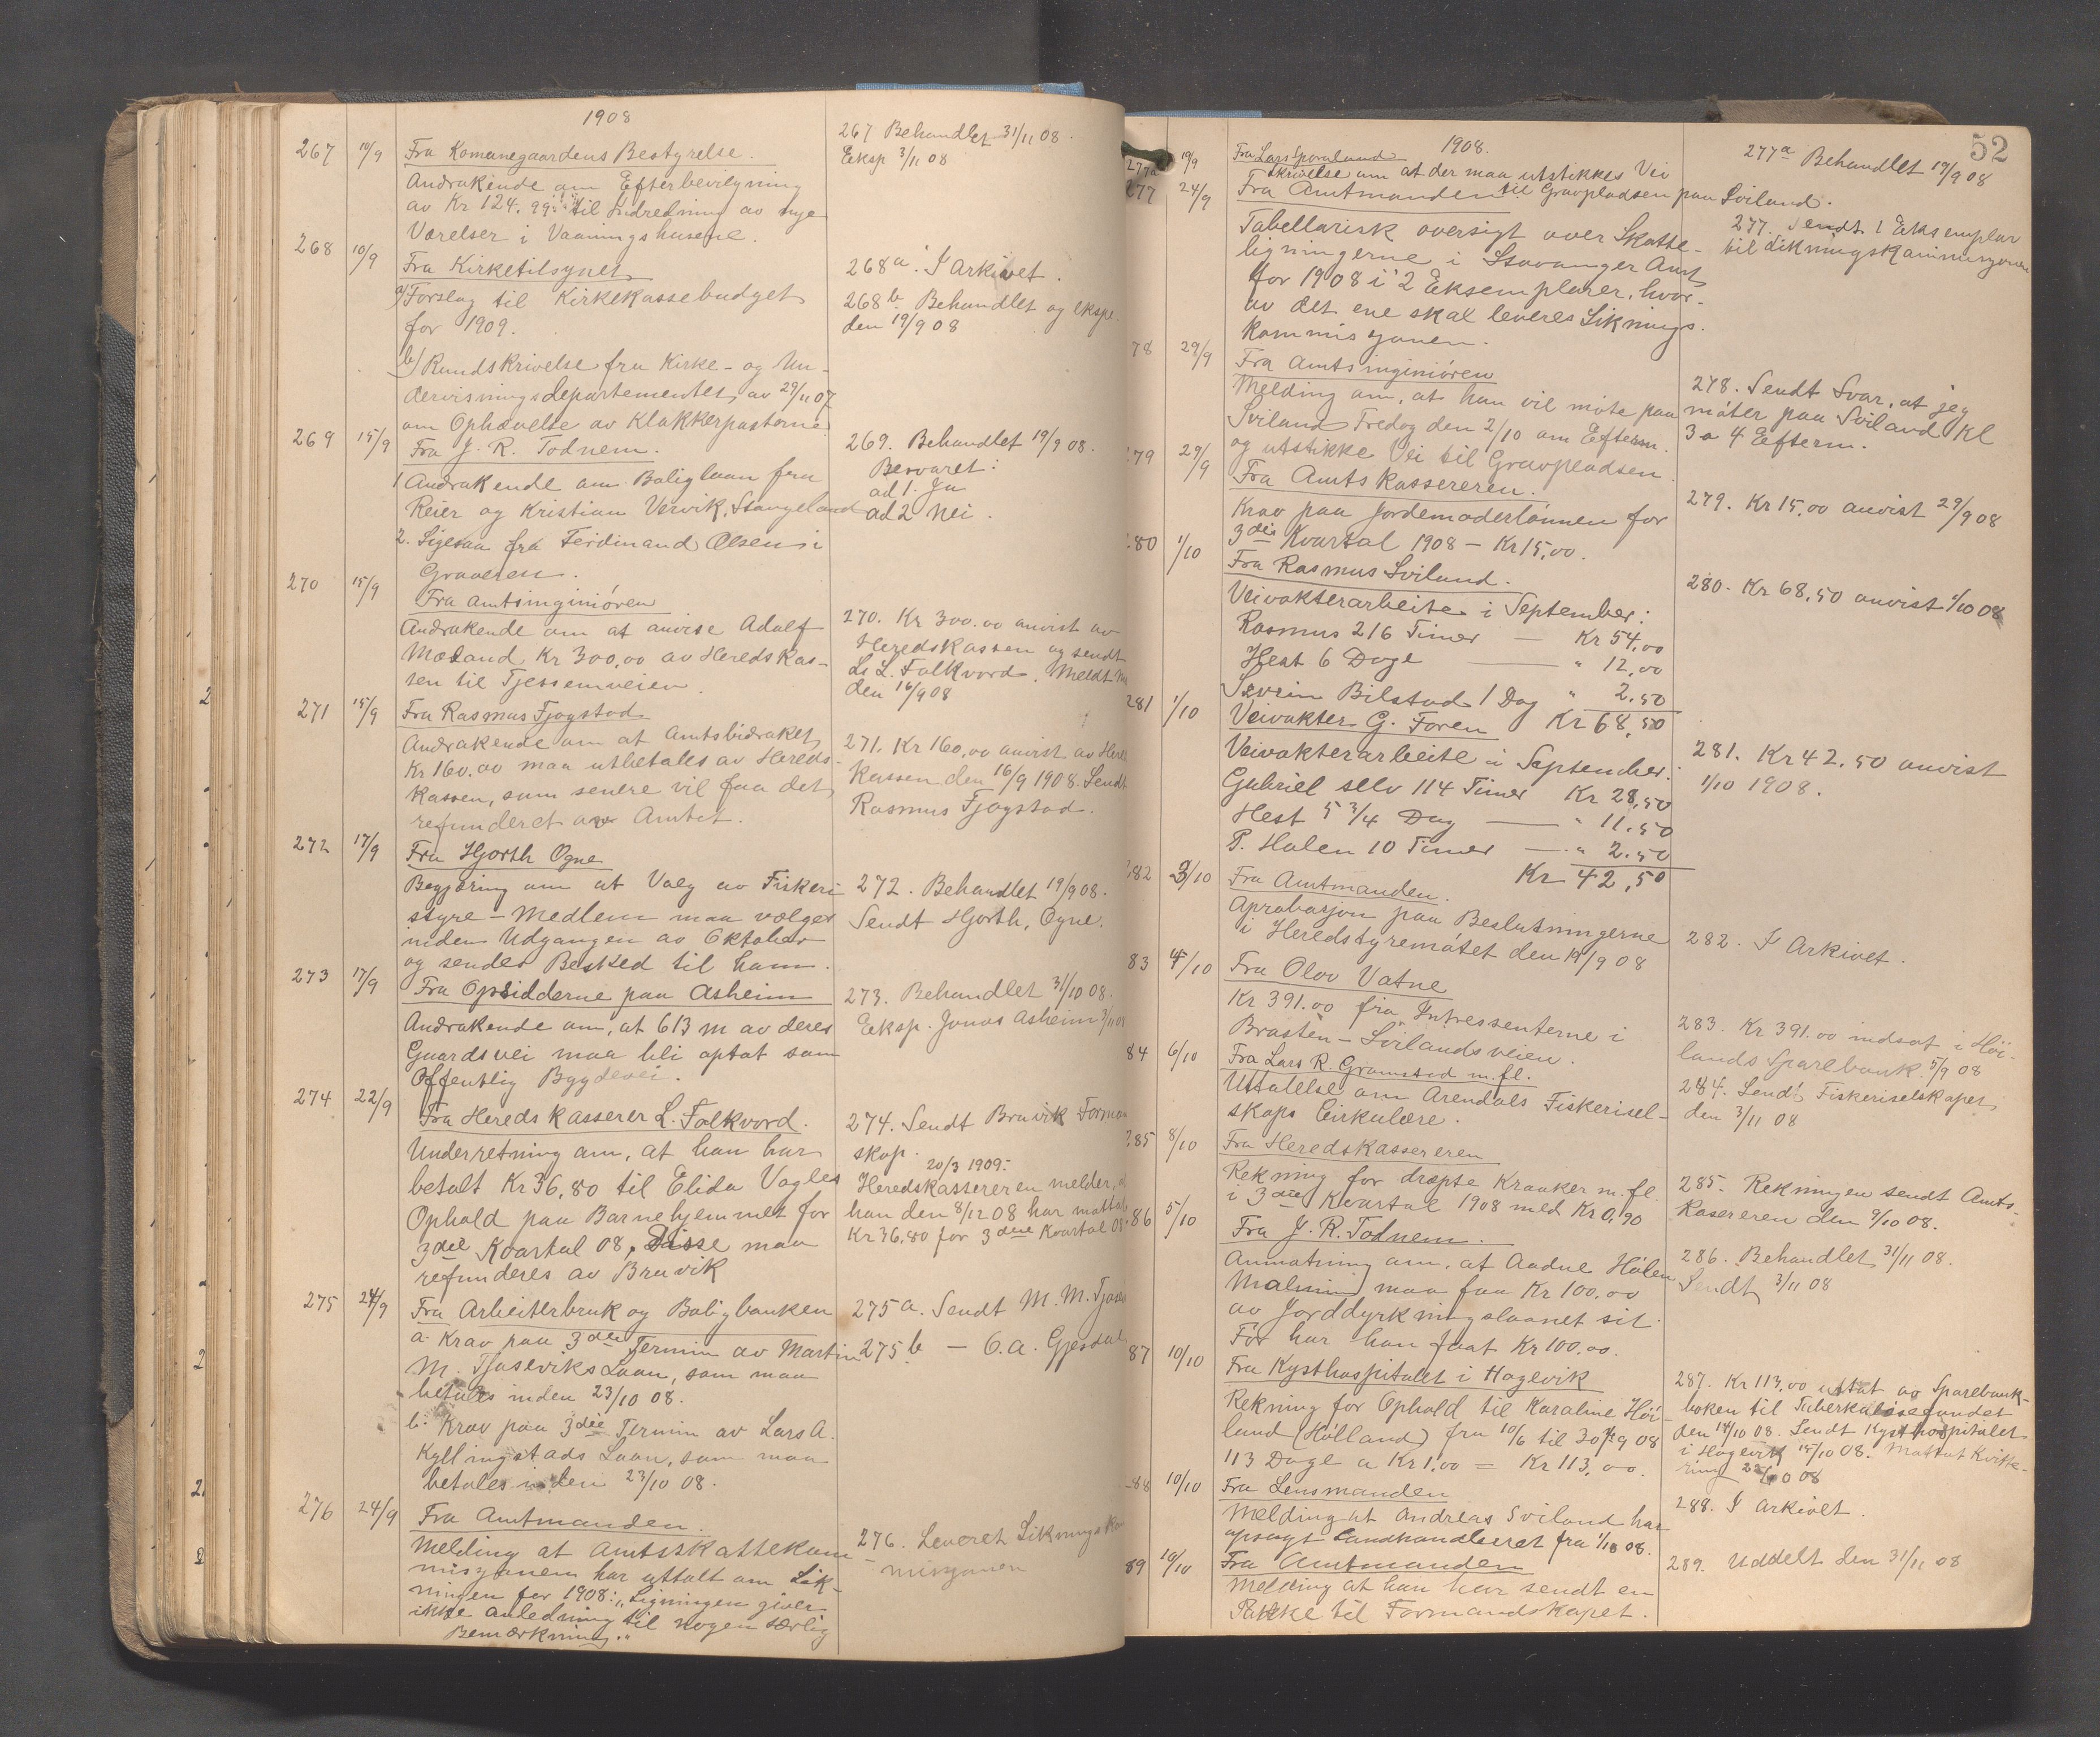 1908
267 10/9 Fra Komunegaardens Bestyrelse.
Andrakende om Efterbevilgning
av Kr 124.99 til Indredning av nye
Værelser i Vaaningshusene.
267 Behandlet 31/11 08.
Eksp 3/11 08
268 10/9 Fra Kirketilsynet
a) Forslag til Kirkekassebudget
for 1909.
b) Rundskrivelse fra Kirke- og Un-
dervisningsdepartementet av 29/11 07
om Ophævelse av Klokkerpostorne.
268a. I Arkivet.
268b Behandlet og ekspe.
den 19/9 08
269 15/9 Fra J. R. Todnem.
1 Andrakende om Boliglaan fra
Reier og Kristian Vervik, Stangeland
2. Ligesaa fra Ferdinand Olsen i
Graveren.
269. Behandlet 19/9 08.
Besvaret:
ad 1. Ja
ad 2 Nei.
270 15/9 Fra Amtsinginiören
Andrakende om at anvise Adolf
Mæland Kr 300,00 av Heredskas-
sen til Tjessemveien.
270. Kr 300.00 anvist av
Heredskassen og sendt
Ls L. Folkvord. Meldt
den 16/9 08
271 15/9 Fra Rasmus Fjogstad
Andrakende om at Amtsbidraket
Kr 160.00 maa utbetales av Hereds-
kassen, som senere vil faa det
refunderet av Amtet.
271. Kr 160,00 anvist av Hered
kassen den 16/9 1908. Sendt
Rasmus Fjogstad.
272 17/9 Fra Hjorth Ogne
Begjæring om at Valg av Fiskeri-
styre-Medlem maa vælges
inden Udgangen av Oktober
og sendes Besked til ham.
272. Behandlet 19/9 08.
Sendt Hjorth, Ogne.
273 17/9 Fra Opsidderne paa Asheim
Andrakende om, at 613 m av deres
Gaardsvei maa bli optat som
Offentlig Bygdevei.
273. Behandlet 31/10 08.
Eeksp. Jonas Asheim 3/11 08
274 22/9 Fra Heredskasserer L. Folkvord.
Underretning om, at han har
betalt Kr 36,80 til Elida Vagles
Ophold paa Barnehjemmet for
3die Kvartal 08. Disse maa
refunderes av Bruvik
274. Sendt Bruvik Forman
skap.
20/3 1909:
Heredskassereren melder, a
han den 8/12 08 har mottat
Kr 36.80 for 3die Kvartal 08.
275 24/9 Fra Arbeiterbruk og Boligbanken
a. Krav paa 3die Termin av Martin
M. Tjosviks Laan, som maa
betales inden 23/10 08.
b. Krav paa 3die Termin av Lars A.
Kyllingstads Laan, som maa
betales inden 23/10 08.
275a. Sendt M. M. Tjos
275b — O. A. Gjesdal
276 24/9 Fra Amtmanden.
Melding at Amtsskattekom
misjonen har uttalt om Lik-
ningen for 1908: „Ligningen giver
ikke anledning til nogen særlig
Bemærkning."
276. Leveret Liknings
misjonen
52
1908.
277a 19/9 Fra Lars Sporaland
Skrivelse om at der maa utstikkes Vei
til Gravpladsen paa Sviland.
277a Behandlet 19/9 08
277 24/9 Fra Amtmanden
Tabellarisk oversigt over Skatte-
ligningerne i Stavanger Amt
for 1908 i 2 Eksemplarer, hvor-
av det ene skal leveres Liknings-
kommisjonen.
277. Sendt 1 Eksemplar
til Likningskommisjonen
78 29/9 Fra Amtsinginiören
Melding om, at han vil möte paa
Sviland Fredag den 2/10 om Efterm.
og utstikke Vei til Gravpladsen.
278. Sendt Svar, at jeg
möter paa Sviland Kl
3 a 4 Efterm.
279 29/9 Fra Amtskassereren.
Krav paa Jordemoderlönnen for
3die Kvartal 1908 — Kr 15,00.
279. Kr 15,00 anvist 29/9 08
280 1/10 Fra Rasmus Sviland.
Veivakterarbeite i September:
Rasmus 216 Timer — Kr 54,00
Hest 6 Dage — " 12,00
Sevrin Bilstad 1 Dag " 2.50
Kr 68,50
280. Kr 68,50 anvist 1/10 08
281 1/10 Veivakter G. Foren
Veivakterarbeite i September:
Gabriel selv 114 Timer Kr 28,50
Hest 5 3/4 Dag — " 11.50
P. Hölen 10 Timer — " 2.50
Kr 42,50
281. Kr 42.50 anvist
1/10 1908.
282 3/10 Fra Amtmanden.
Aprobasjon paa Beslutningerne
i Heredstyremötet den 19/9 08
282. I Arkivet.
83 4/10 Fra Olav Vatne
Kr 391.00 fra Intressenterne i
Bråstèn-Svilandsveien.
283. Kr 391.00 indsat i Höi-
lands Sparebank. 5/9 08
84 6/10 Fra Lars R. Gramstad m.fl.
Uttalelse om Arendals Fiskerisel-
skaps Cirkulære.
284. Sendt Fiskeriselskapet
den 3/11 08
285 8/10 Fra Heredskassereren
Rekning for dræpte Kraaker m.fl.
i 3die Kvartal 1908 med Kr 0,90
285. Rekningen sendt Amts-
kasereren den 9/10 08.
86 5/10 Fra J. R. Todnem.
Anmotning om, at Aadne Hölen
Malmin maa faa Kr 100,00
av Jorddyrkningslaanet sit.
För har han faat Kr 100.00.
286. Behandlet 31/11 08.
Sendt 3/11 08
87 10/10 Fra Kysthospitalet i Hagevik
Rekning for Ophold til Karaline Höi-
land (Hölland) fra 10/6 til 30/9 08
113 Dage a Kr 1.00 = Kr 113,00.
287. Kr 113,00 uttat av Sparebank-
boken til Tuberkulosefondet
den 14/10 08. Sendt Kysthospitalet
i Hagevik 15/10 08. Mottat Kvitte-
ring 22/10 08
88 10/10 Fra Lensmanden
Melding at Andreas Sviland har
opsagt Landhandleret fra 1/10 08.
288. I Arkivet.
89 10/10 Fra Amtmanden
Melding at han har sendt en
Pakke til Formandskapet.
289. Uddelt den 31/11 08